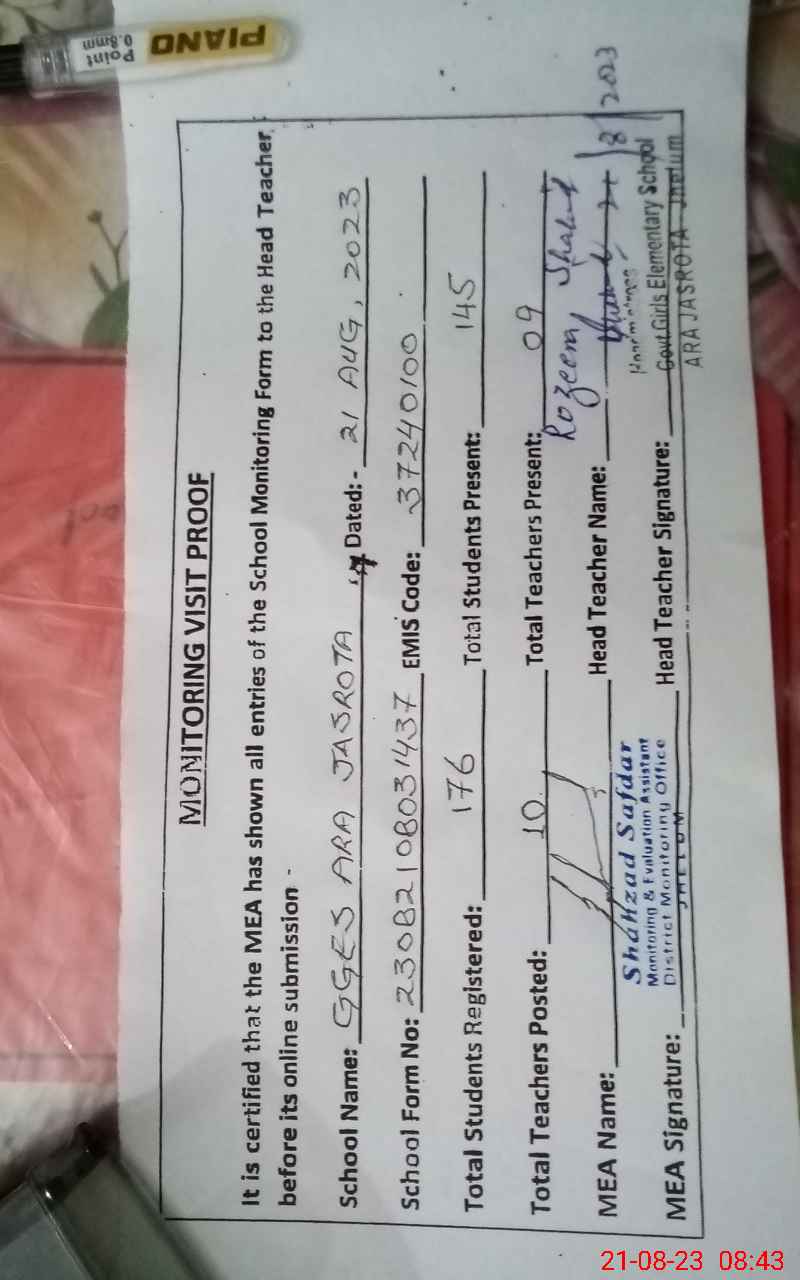 PIANO
Point
0.8mm
MONITORING VISIT PROOF
It is certified that the MEA has shown all entries of the School Monitoring Form to the Head Teacher
before its online submission -
School Name: GGES ARA JASROTA Dated: - 21 AUG, 2023
School Form No: 23082108031437 EMIS Code: 37240100
Total Students Registered: 176 Total Students Present: 145
Total Teachers Posted: 10 Total Teachers Present: 09
MEA Name: Head Teacher Name: Rozeem Shahid
Shahzad Safdar
Monitoring & Evaluation Assistant
District Monitoring Office
JHELUM
MEA Signature: Head Teacher Signature:
21/8/2023
Govt Girls Elementary School
ARA JASROTA Jhelum
21-08-23 08:43